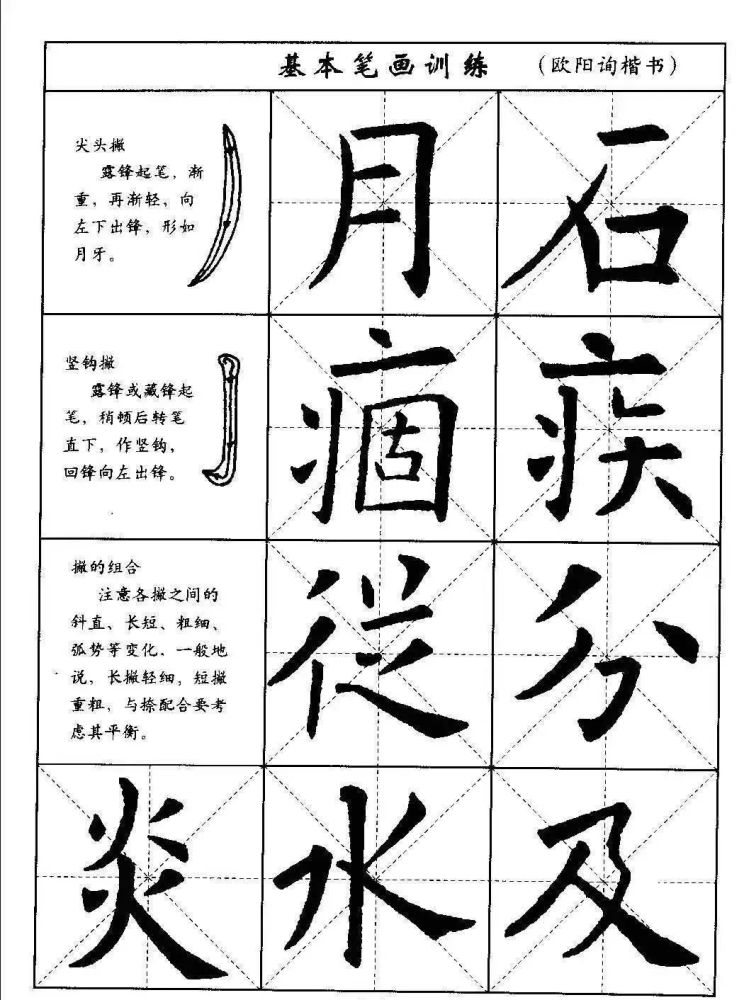 基本笔画训练 （欧阳询楷书）
尖头撇
露锋起笔，渐
重，再渐轻，向
左下出锋，形如
月牙。
月 石
竖钩撇
露锋或藏锋起
笔，稍顿后转笔
直下，作竖钩，
回锋向左出锋。
痼 疾
撇的组合
注意各撇之间的
斜直、长短、粗细、
弧势等变化，一般地
说，长撇轻细，短撇
重粗，与捺配合要考
虑其平衡。
従 分
炎 水 及